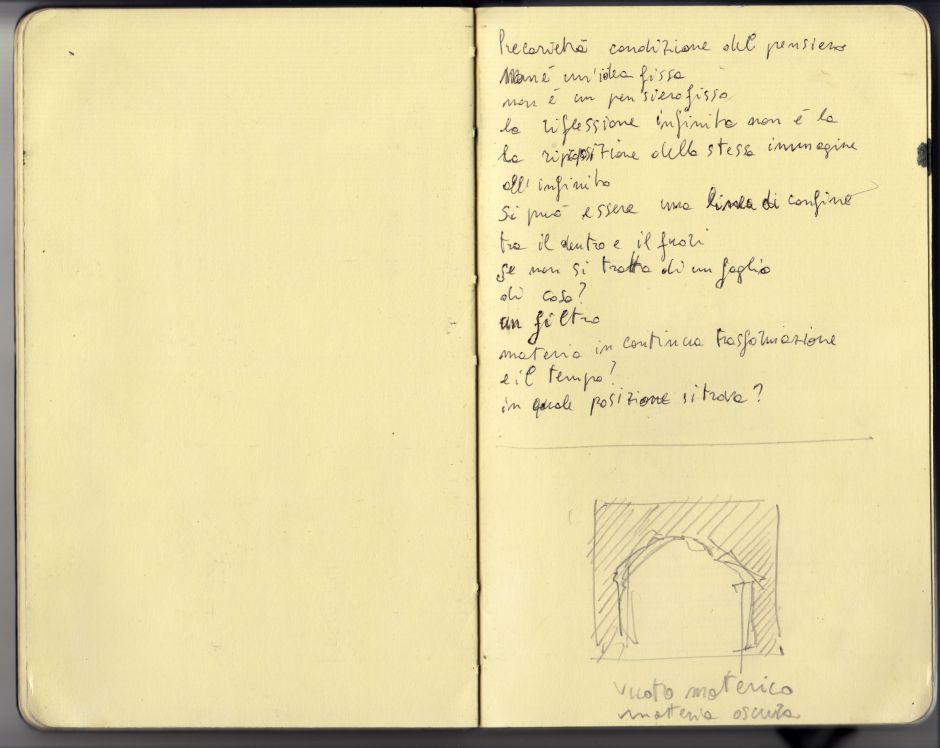 Precarietà condizione del pensiero
Non è un'idea fissa
non è un pensiero fisso
la riflessione infinita non è la
la riposizione della stessa immagine
all'infinito
Si può essere una linea di confine
tra il dentro e il fuori
se non si tratta di un foglio
di cosa?
un filtro
materia in continua trasformazione
e il tempo?
in quale posizione si trova?
vuoto materico
materia oscura